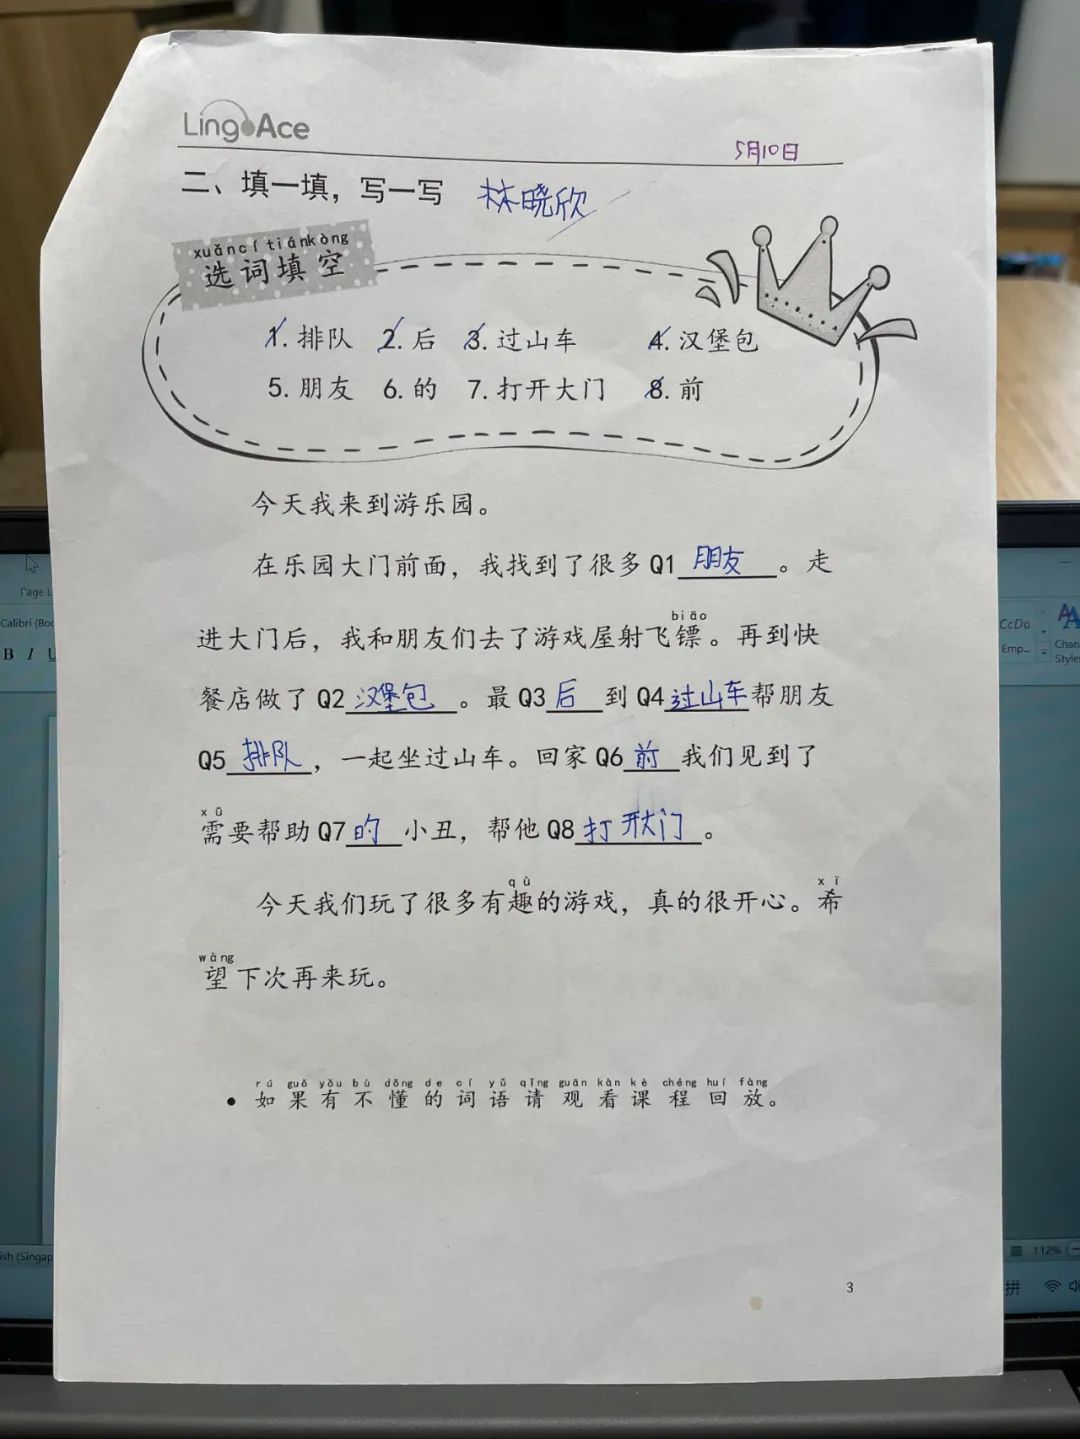 LingoAce
5月10日
二、填一填，写一写 林晓欣
xuǎn cí tián kòng
选词填空
1. 排队 2. 后 3. 过山车 4. 汉堡包
5. 朋友 6. 的 7. 打开大门 8. 前
今天我来到游乐园。
在乐园大门前面，我找到了很多 Q1 朋友 。走
biāo
进大门后，我和朋友们去了游戏屋射飞镖。再到快
餐店做了 Q2 汉堡包 。最 Q3 后 到 Q4 过山车 帮朋友
Q5 排队 ，一起坐过山车。回家 Q6 前 我们见到了
xū
需要帮助 Q7 的 小丑，帮他 Q8 打开大门 。
qù xī
今天我们玩了很多有趣的游戏，真的很开心。希
wàng
望下次再来玩。
rú guǒ yǒu bù dǒng de cí yǔ qǐng guān kàn kè chéng huí fàng
• 如果有不懂的词语请观看课程回放。
3
Page L
Calibri (Boo
B I U
CcDc
Emp...
Chan
Styles
ish (Singap
112%
拼